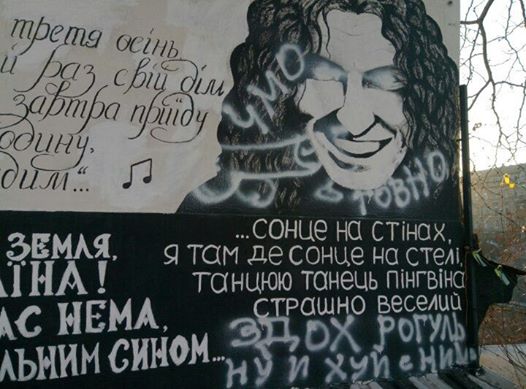 третя осінь
й раз свій дім
завтра приїду
одину,
дим“
ЧМО
ГОВНО
...сонце на стінах,
я там де сонце на стелі,
танцюю танець пінгвіна
страшно веселий
ЗЕМЛЯ,
ЇНА!
АС НЕМА,
ЛЬНИМ СИНОМ...
ЗДОХ РОГУЛЬ
НУ И ХУЙ С НИМ